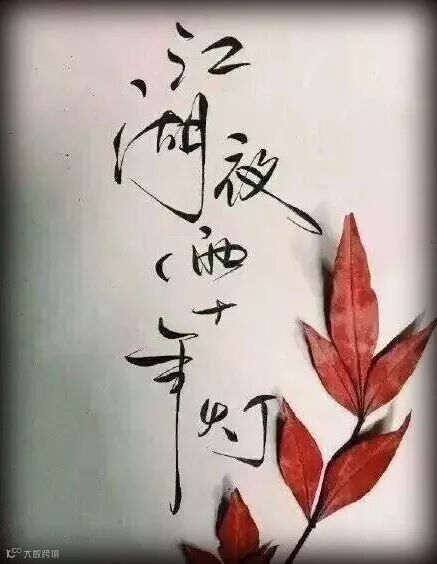 江湖夜雨十年灯
大数跨境